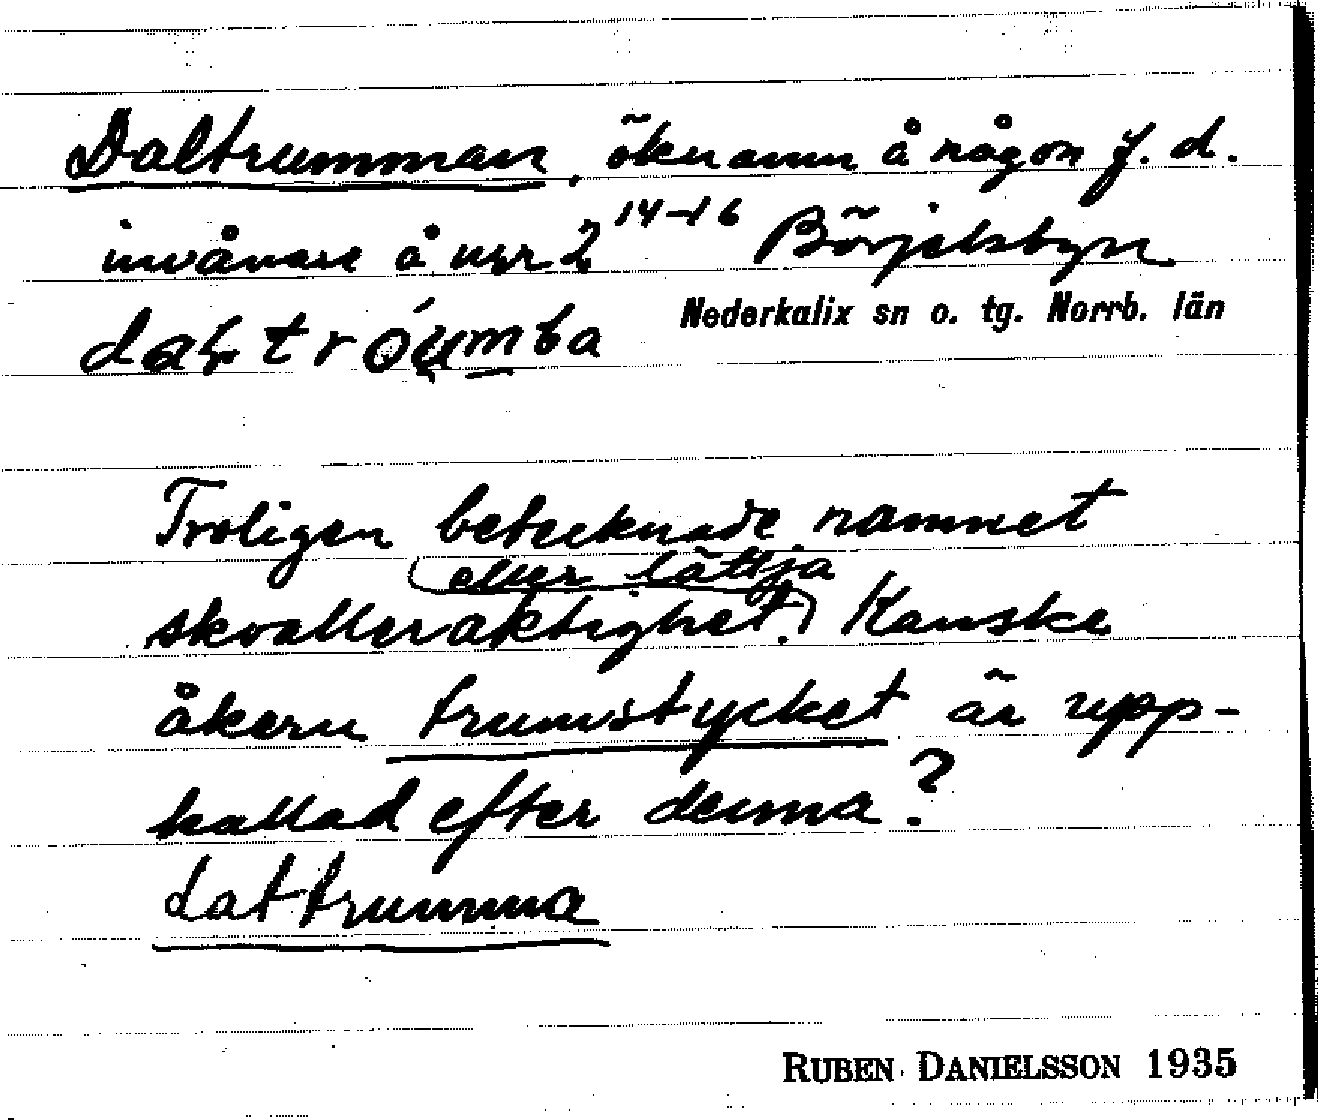 Daltrumman, öknamn å någon f. d.
invånare å nyr 2 14–16 Börjelsbyn
Nederkalix sn o. tg. Norrb. län
Troligen betecknade namnet
eller lättja
skvalleraktighet. Kanske
åkern trumstycket är upp-
kallad efter denna?
dattrumma
RUBEN DANIELSSON 1935